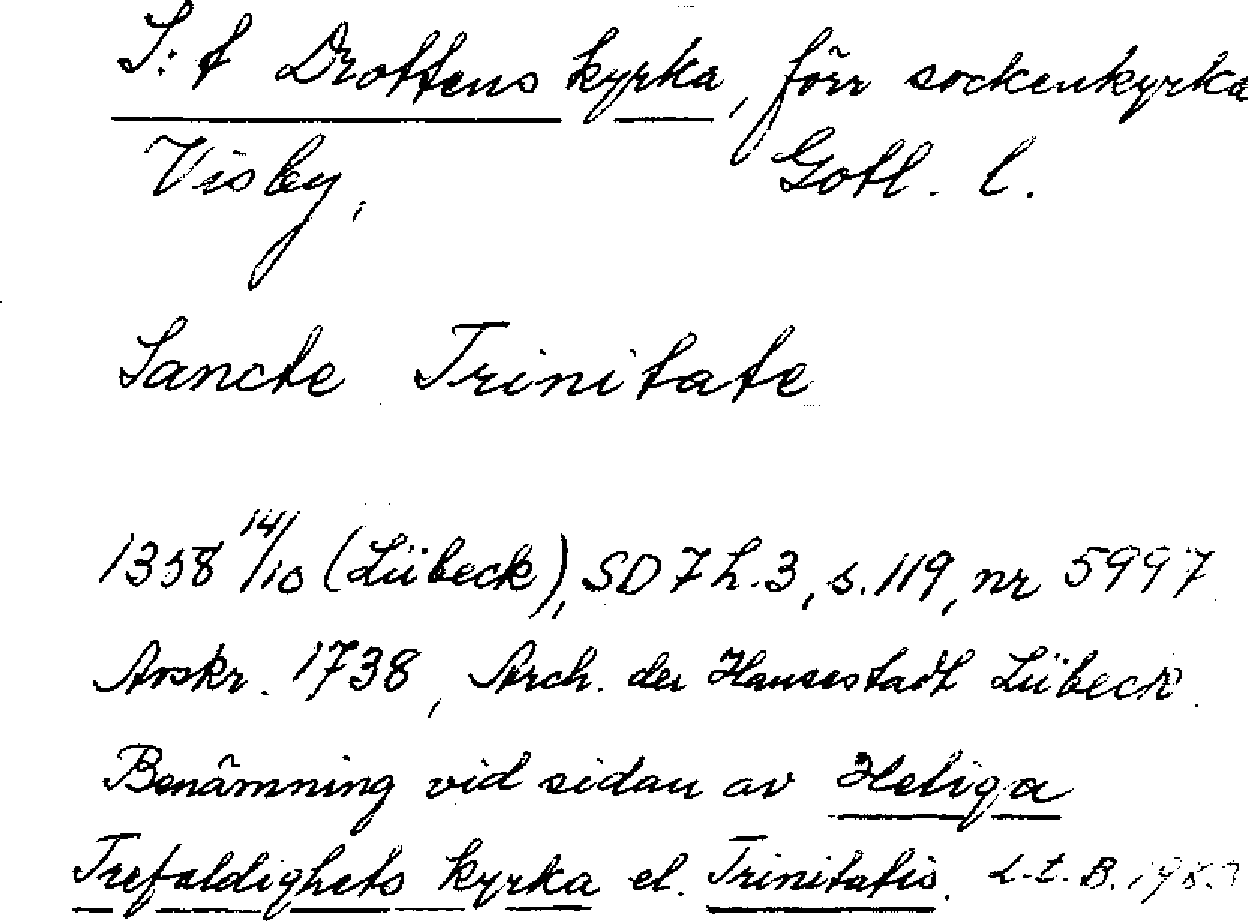 S:t Drottens kyrka, förr sockenkyrka
Visby, Gotl. l.
Sancte Trinitate
1358 14/10 (Lübeck), SD 7 h.3, s.119, nr 5997
Avskr. 1738, Arch. der Hansestadt Lübeck.
Benämning vid sidan av Heliga
Trefaldighets kyrka el. Trinitatis.